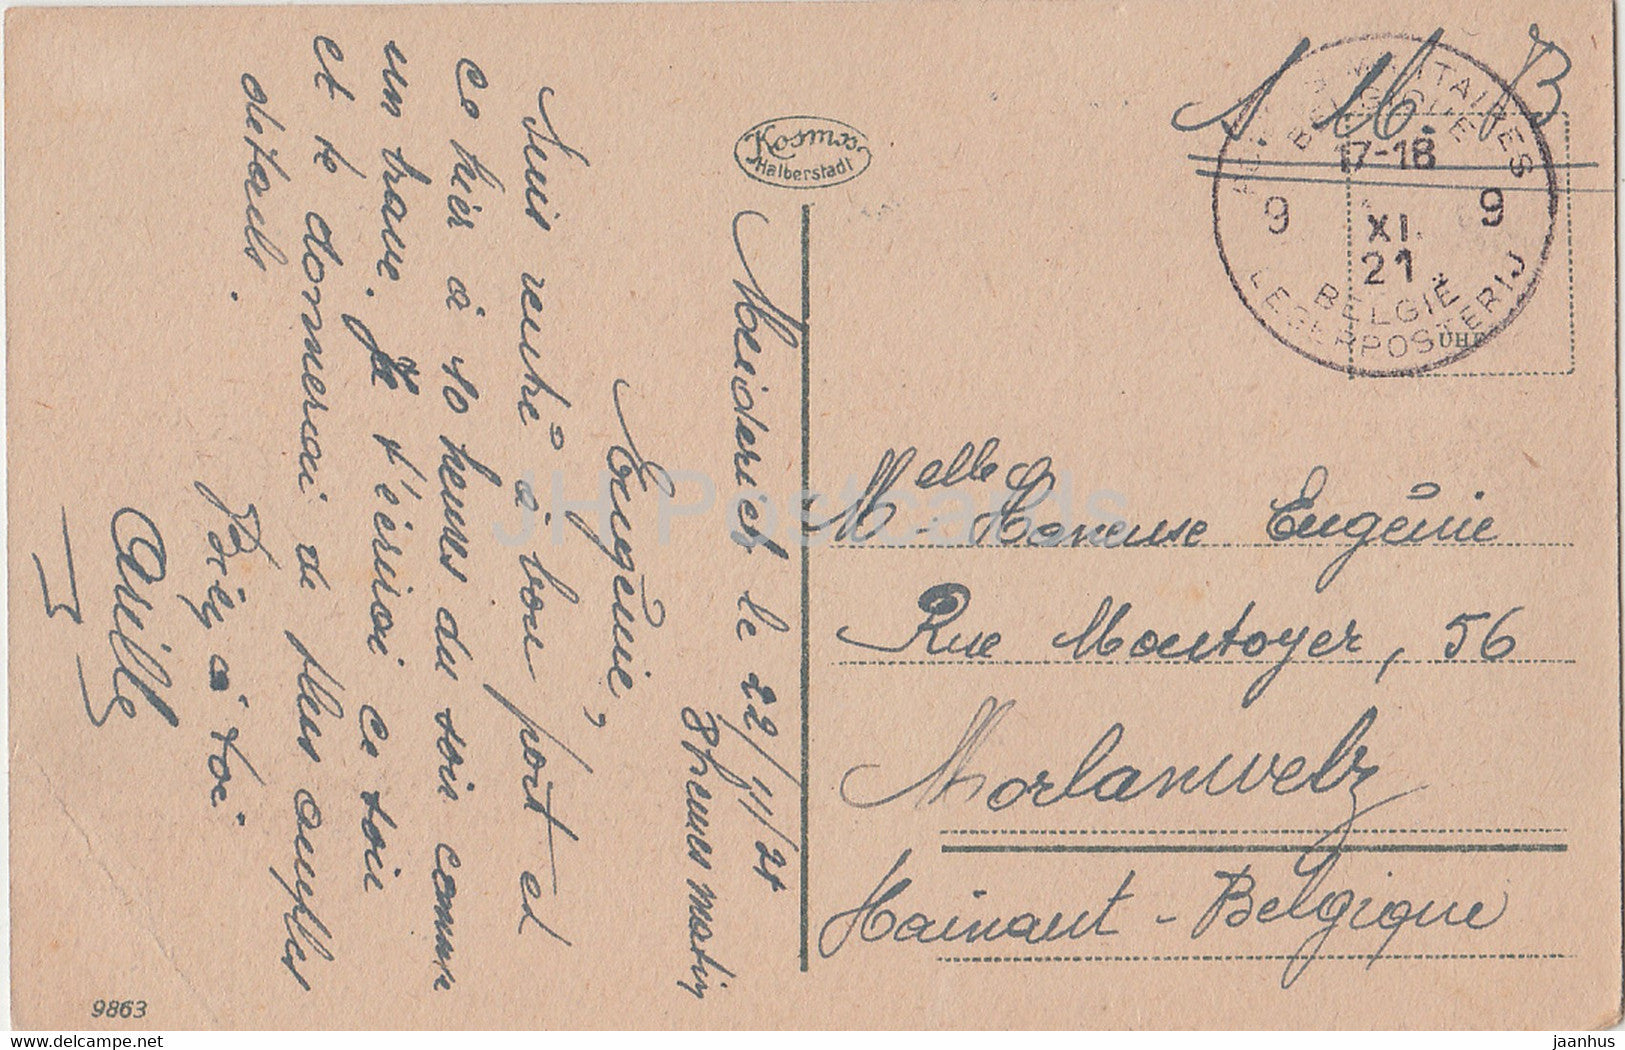 S. M. B
POSTES MILITAIRES
BELGIQUE
17-18
9 9
XI.
21
BELGIË
LEGERPOSTERIJ
Kosmos
Halberstadt
Meiderich le 22/11/21
8 heures matin
Eugénie,
Suis rentré à bon port et
ce hier à 10 heures du soir comme
un brave. Je t'écrirai ce soir
et te donnerai de plus amples
détails.
à toi
9863
Melle Haneuse Eugénie
Rue Montoyer, 56
Morlanwelz
Hainaut - Belgique
JH Postcards
www.delcampe.net
jaanhus